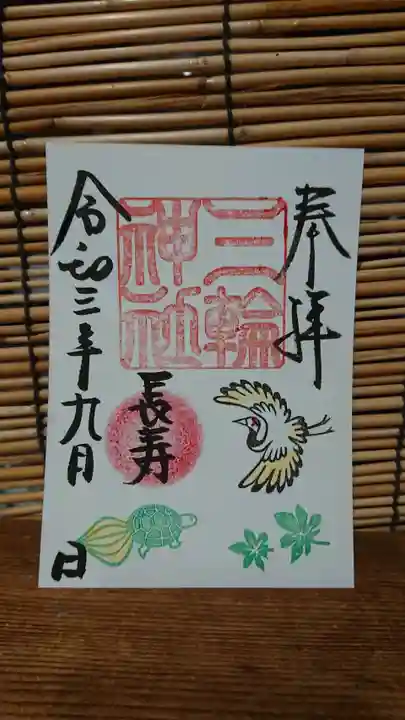 奉拝
三輪
神社
長寿
令和三年九月
日